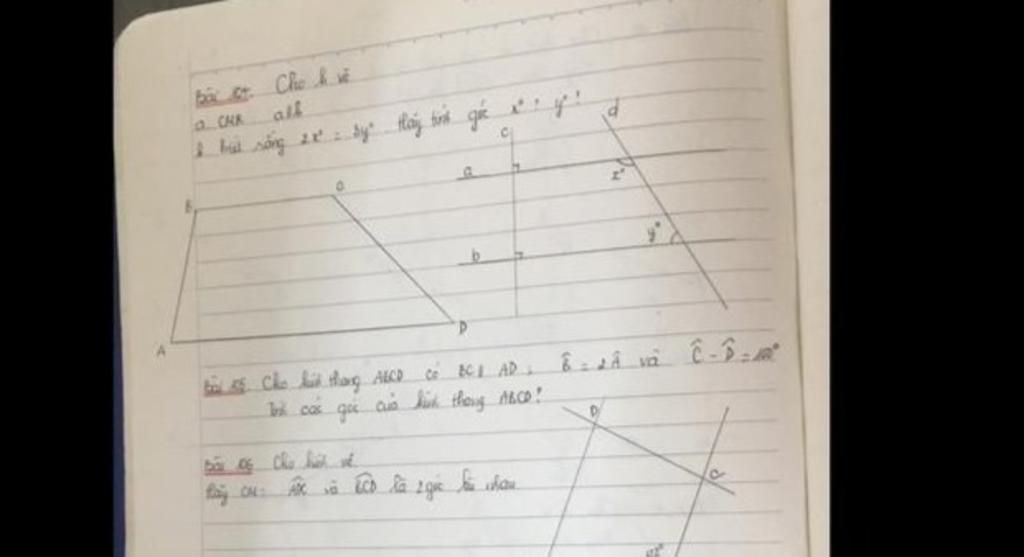 Bài 104. Cho h vẽ
a CMR a//b
b biết rằng 2x° = 3y°. Hãy tính góc x°, y°?
c
d
a
x°
b
y°
B
C
A
D
Bài 105 Cho hình thang ABCD có BC // AD, B̂ = 2Â và Ĉ - D̂ =
Tính các góc của hình thang ABCD?
Bài 106 Cho hình vẽ
Hãy CM: và BCD là 2 góc bù nhau
D
C